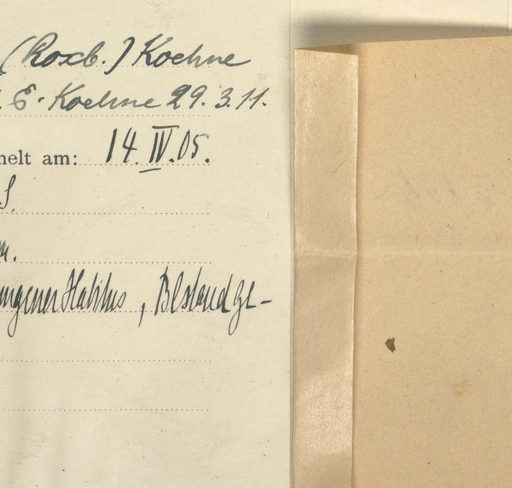 (Roxb.) Koehne
E. Koehne 29. 3. 11.
melt am: 14. IV. 05.
ngener Habitus, Bestand ge-